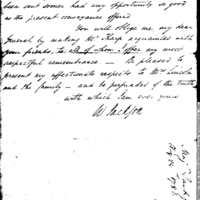 been sent sooner had any opportunity so good
as the present conveyance offered
You will oblige me my dear
General by making Mr. Sharp acquainted with
your friends, to all of whom I offer my most
respectful remembrance — Be pleased to
present my affectionate respects to Mrs Lincoln
and the family — and be persuaded of the truth
with which I am ever yours
W Jackson